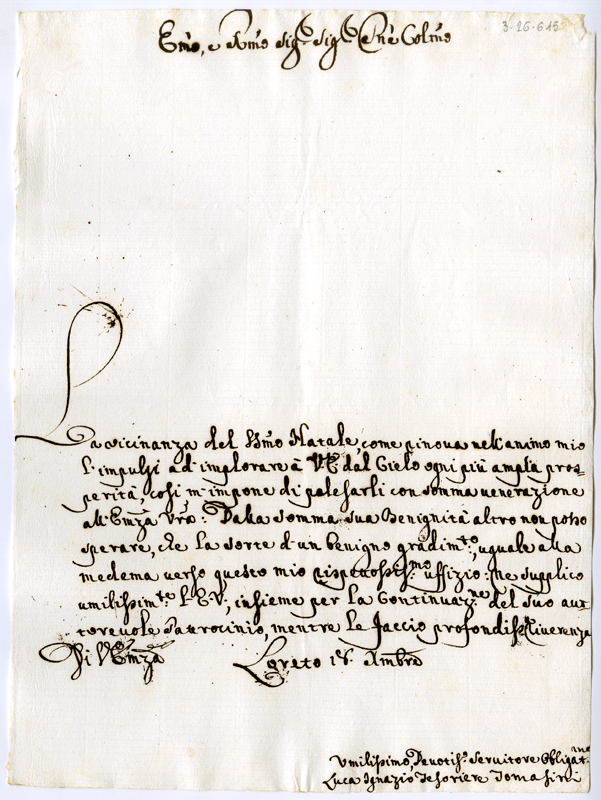 3-26-615
Emo, e Rmo Sigr Sigr Pne Colmo
La vicinanza del SSmo Natale, come rinova nell'animo mio
l'impulsi ad implorare à VE dal Cielo ogni più ampla pros=
perità, così m'impone di palesarli con somma venerazione
all'Emza Vra: Dalla somma sua Benignità altro non posso
sperare, che la sorte d'un benigno gradimto, uguale alla
medema verso questo mio rispettosissmo uffizio: ne supplico
umilissimte l'E.V., insieme per la Continuazne del suo au=
torevole Patrocinio, mentre le faccio profondissa riverenza
Di V Emza Loreto 18 Xmbre
Umilissimo, Devotiso Servitore Obligatmo
Luca Ignazio Tesoriere Tomasini